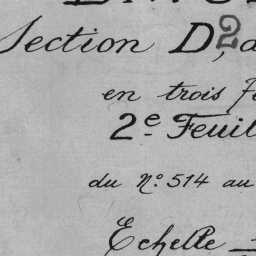 Section D2, d
en trois Fe
2e Feuil
du No. 514 au
Echelle